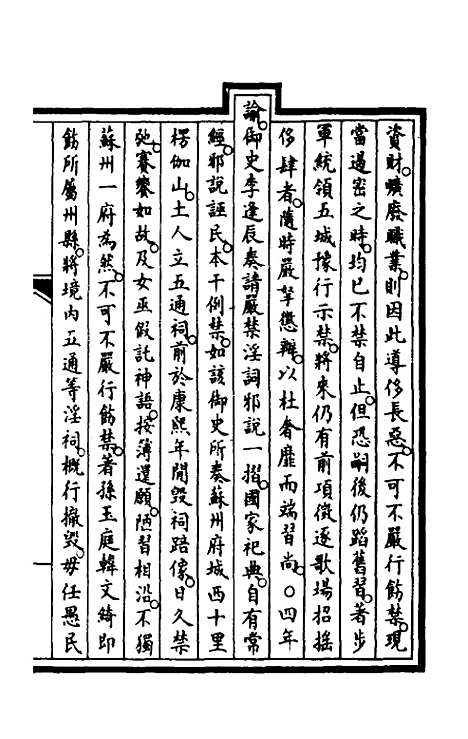 資財。曠廢職業。則因此導侈長惡。不可不嚴行飭禁。現
當遏密之時。均已不禁自止。但恐嗣後仍蹈舊習。著步
軍統領五城掾行示禁。將來仍有前項徵逐歌場招搖
侈肆者。隨時嚴拏懲辦。以杜奢靡而端習尚。○四年
諭。御史李逢辰奏請嚴禁淫詞邪說一摺。國家祀典。自有常
經。邪說誣民。本干例禁。如該御史所奏蘇州府城西十里
楞伽山。土人立五通祠。前於康熙年閒毀祠踣像。日久禁
弛。賽饗如故。及女巫假託神語。按簿還願。陋習相沿。不獨
蘇州一府為然。不可不嚴行飭禁。著孫玉庭韓文綺即
飭所屬州縣。將境內五通等淫祠。概行撤毀。毋任愚民